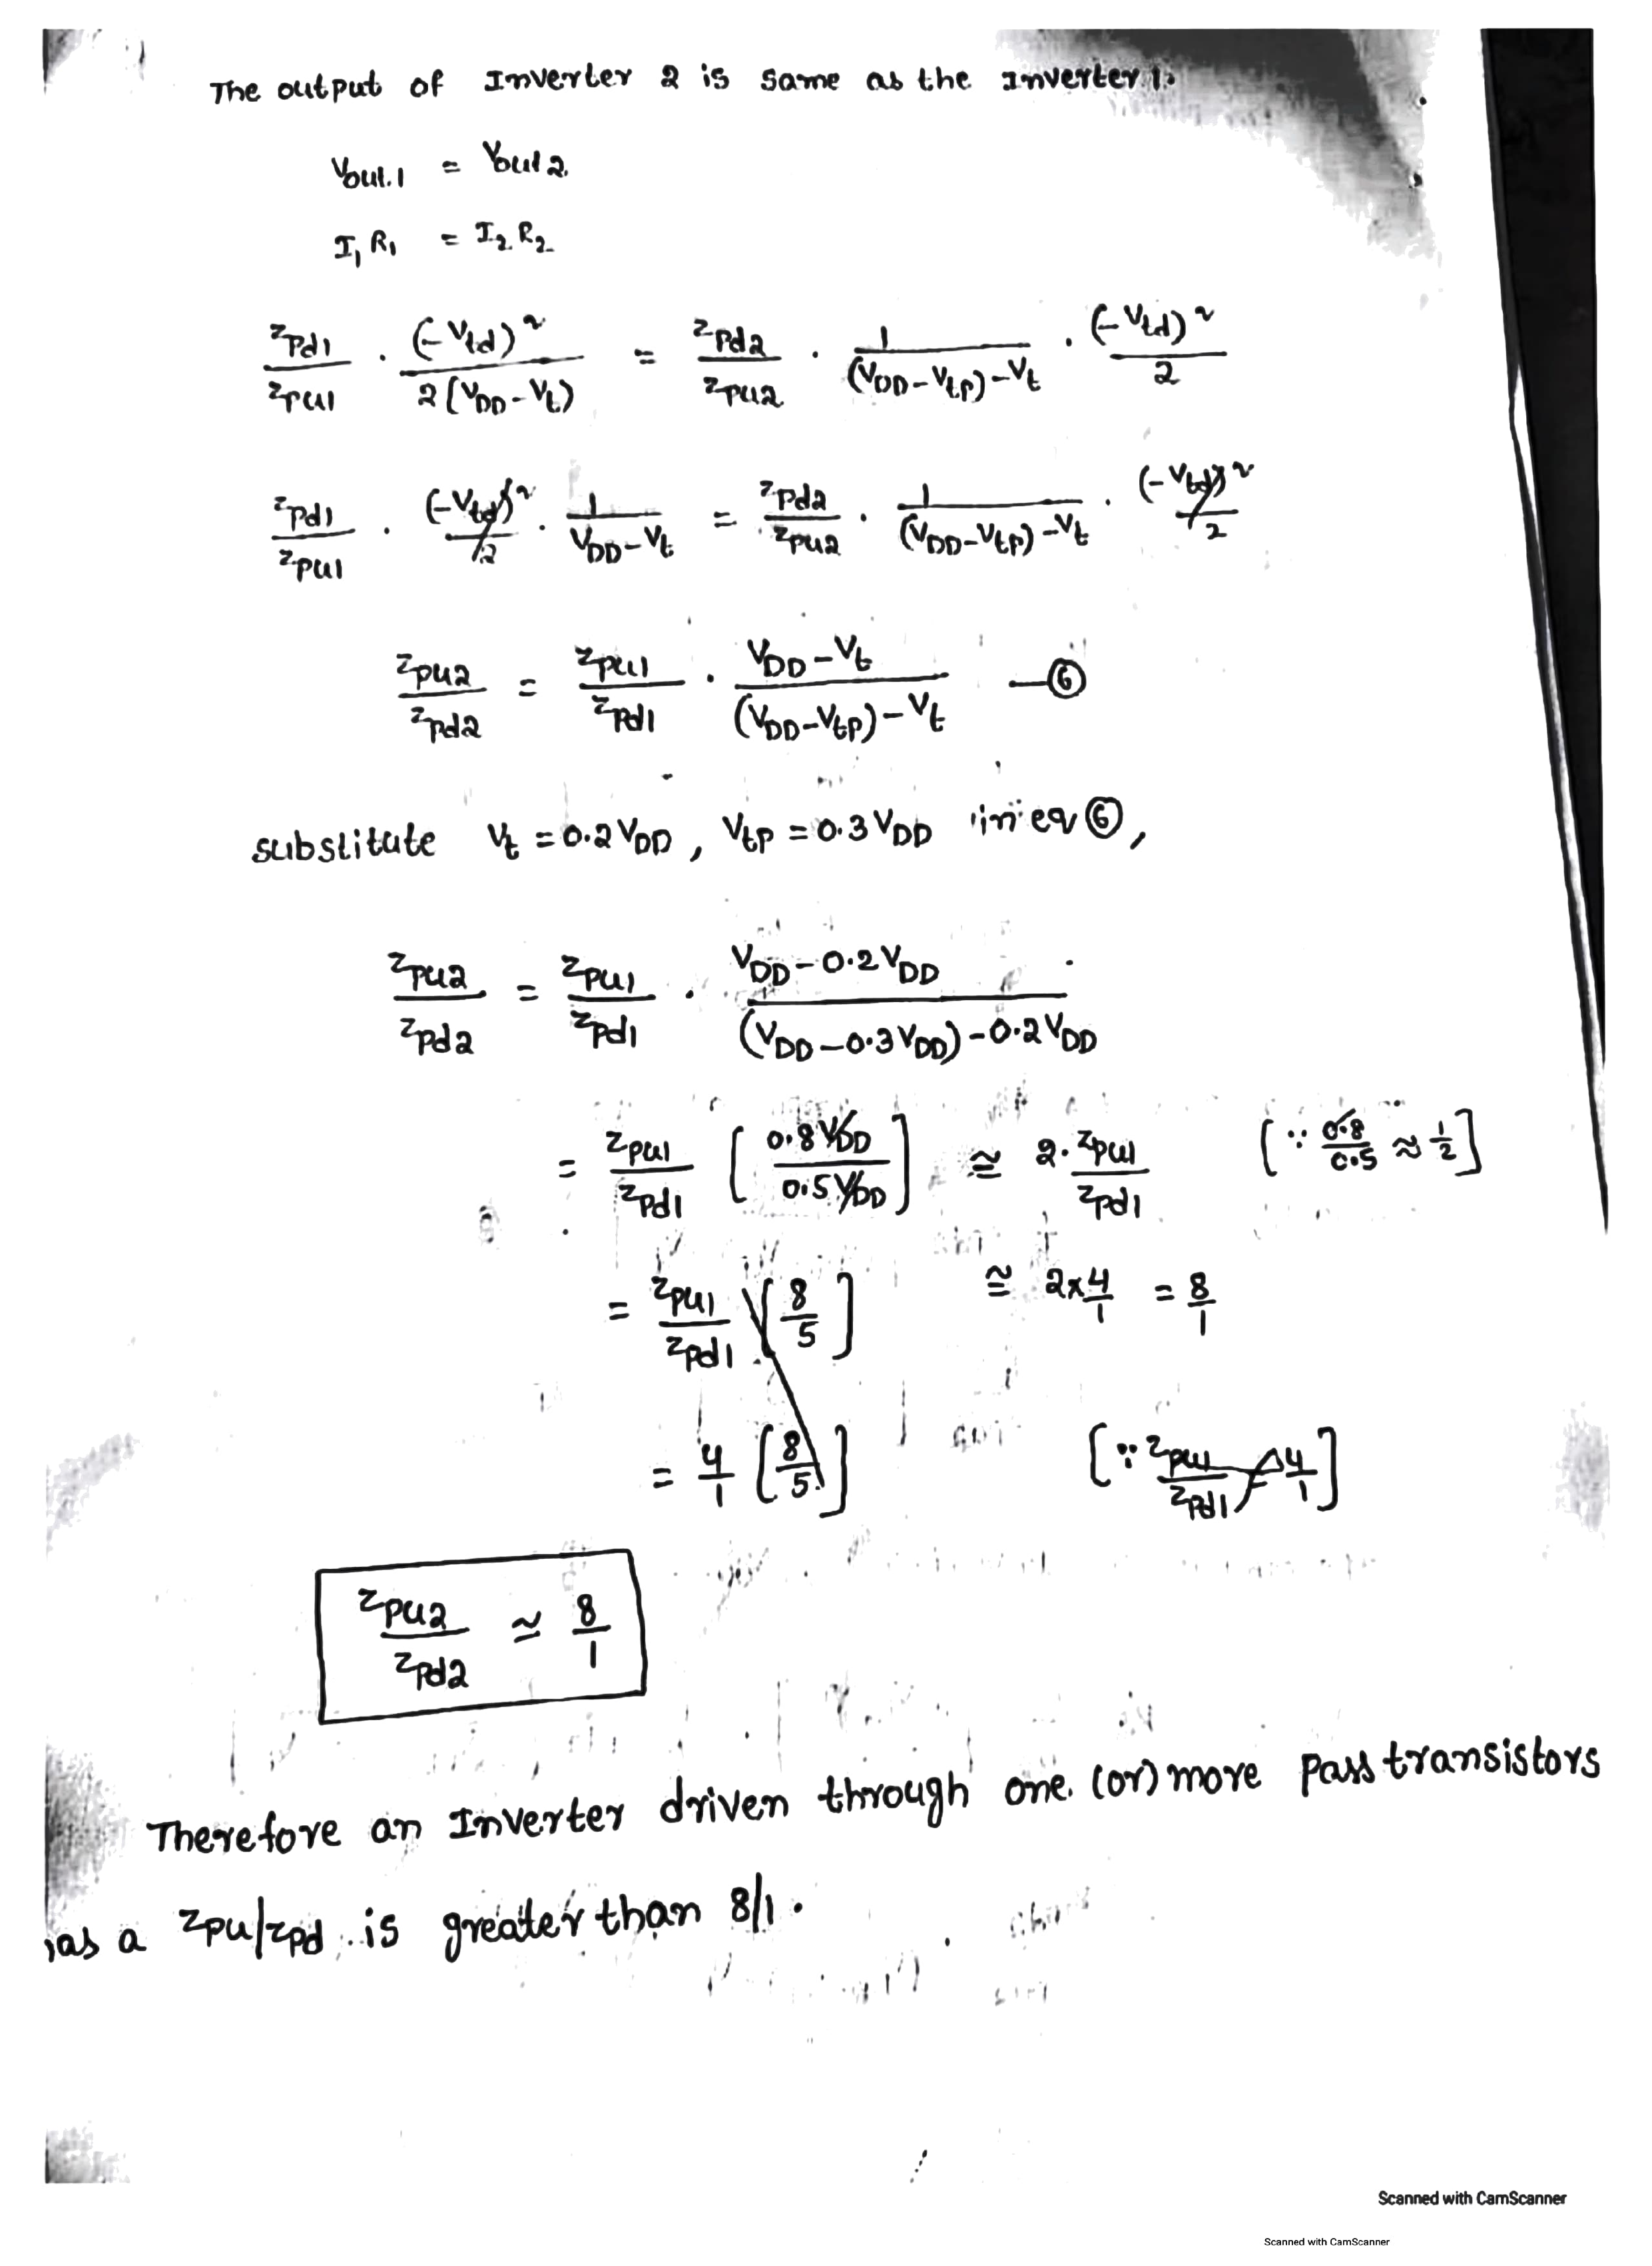 The output of Inverter 2 is same as the Inverter 1.
Vout.1 = Vout 2.
I1 R1 = I2 R2
Zpd1/Zpu1 . (-Vtd)²/2(VDD-Vt) = Zpd2/Zpu2 . 1/(VDD-Vtp)-Vt . (-Vtd)²/2
Zpd1/Zpu1 . (-Vtd)²/2 . 1/VDD-Vt = Zpd2/Zpu2 . 1/(VDD-Vtp)-Vt . (-Vtd)²/2
Zpu2/Zpd2 = Zpu1/Zpd1 . VDD-Vt/(VDD-Vtp)-Vt —⑥
substitute Vt = 0.2VDD, Vtp = 0.3VDD in eq ⑥,
Zpu2/Zpd2 = Zpu1/Zpd1 . VDD-0.2VDD/(VDD-0.3VDD)-0.2VDD
= Zpu1/Zpd1 [0.8VDD/0.5VDD] ≅ 2.Zpu1/Zpd1 [∵ 0.8/0.5 ≈ 1/2]
= Zpu1/Zpd1 [8/5] ≅ 2x4/1 = 8/1
= 4/1 [8/5] [∵ Zpu1/Zpd1 = 4/1]
Zpu2/Zpd2 ≅ 8/1
Therefore an Inverter driven through one (or) more pass transistors
as a Zpu/Zpd is greater than 8/1.
Scanned with CamScanner
Scanned with CamScanner